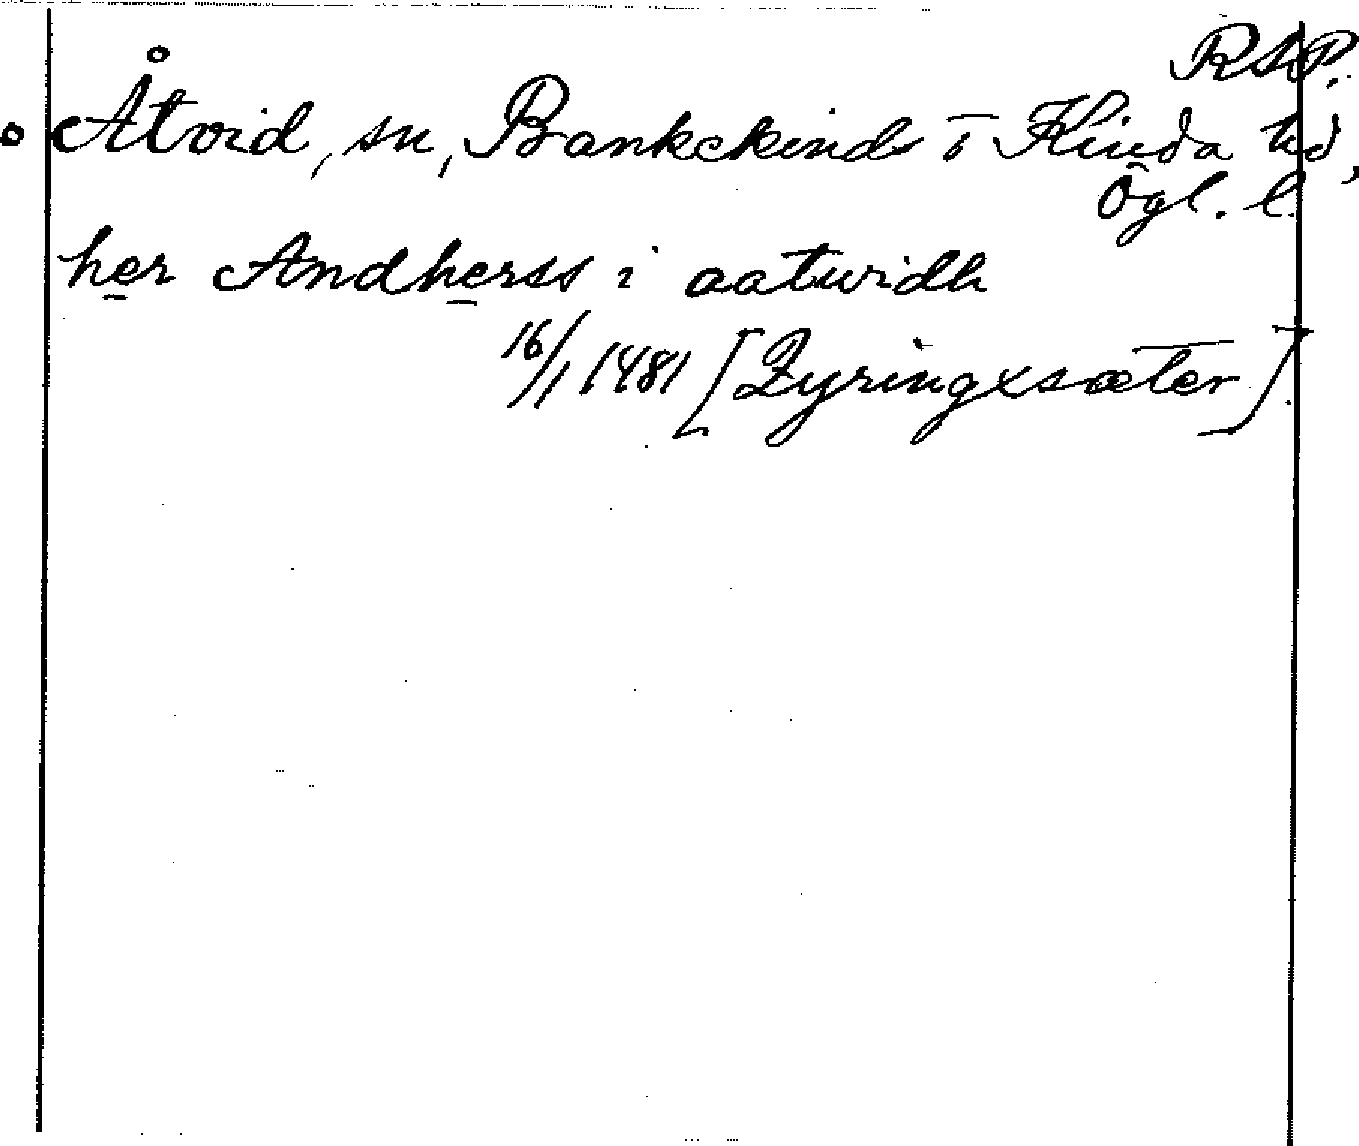 RAP.
Åtvid, sn, Bankekinds o Kinda hd,
Ögl. l.
her Andherss i aatwidh
16/1 1481 [Zyringxsæter].